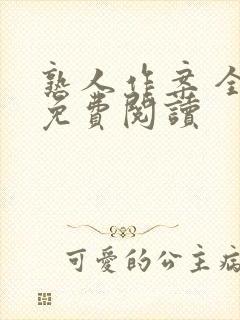 熟人作案全
免費閱讀
可愛的公主病